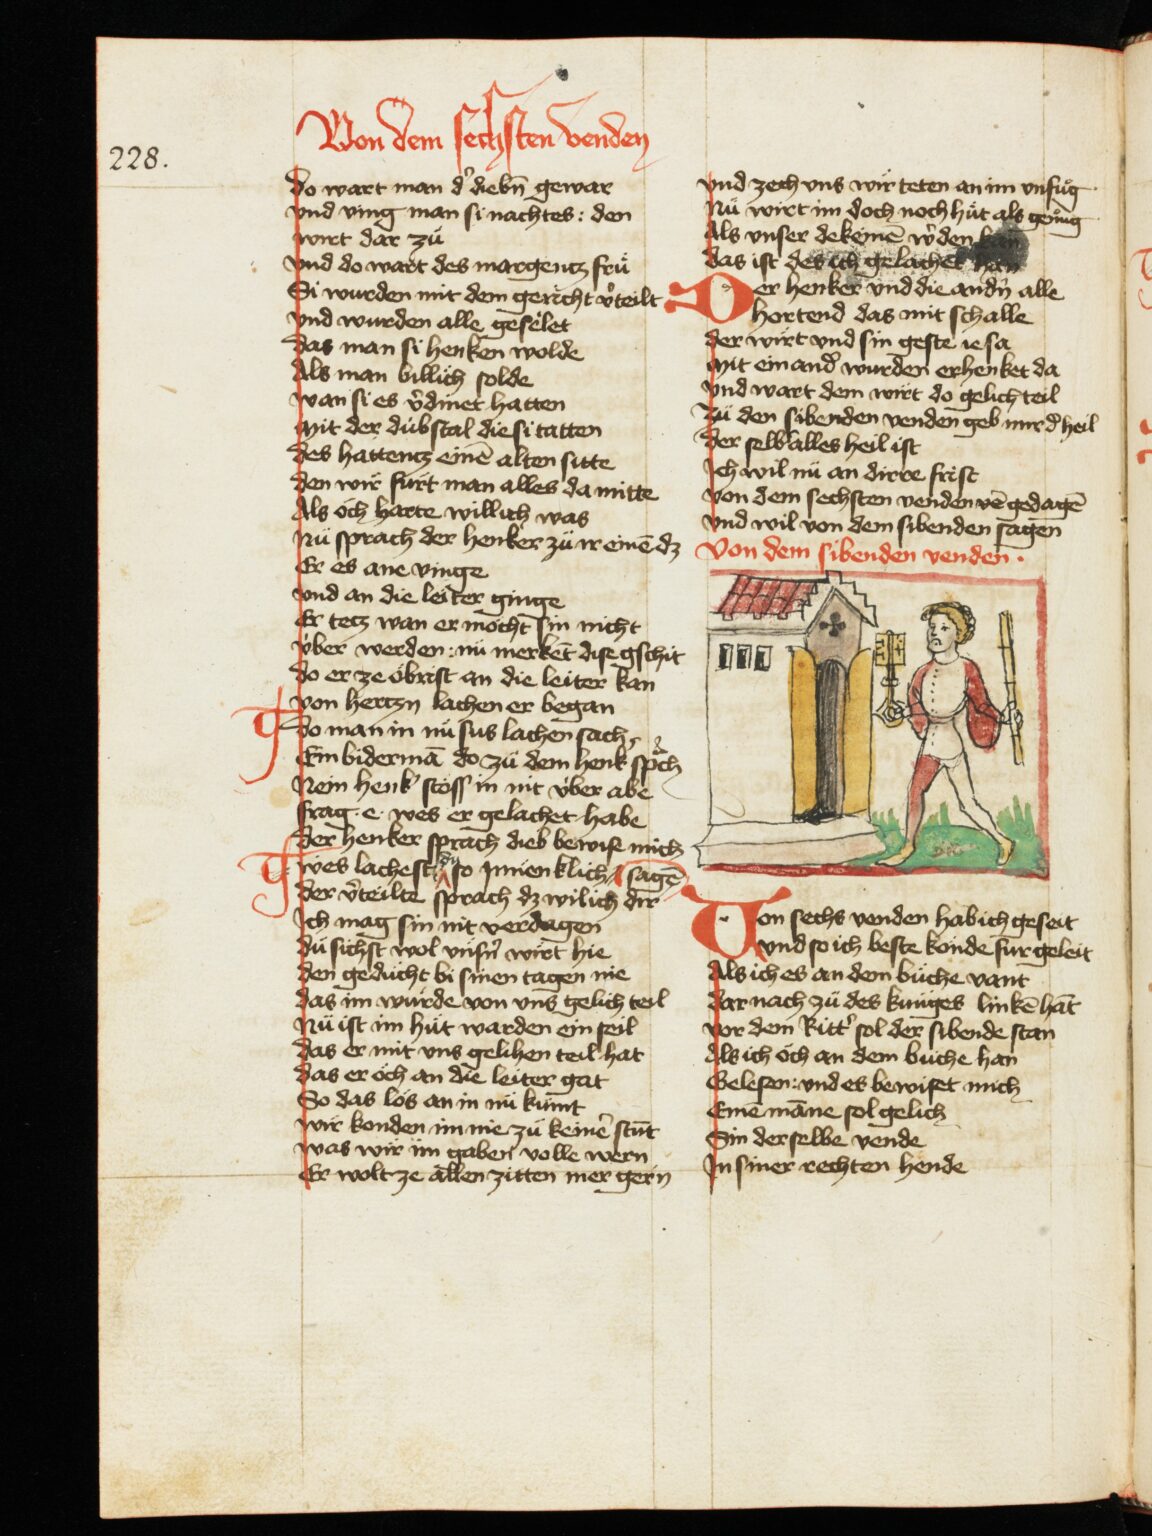 228.
Von dem sechsten venden
do wart man d͛ diebn̄ gewar
vnd ving man si nachtes: den
wirt dar zů
vnd do wart des margentz frů
Si wurden mit dem gericht v͛teilt
vnd wurden alle geseilet
das man si henken wolde
Als man billich solde
wan si es v͛dinet hatten
mit der dubstal die si tatten
des hattentz einē alten sitte
den wir fürt man alles da mitte
Als och harte willich was
Nü sprach der henker zü ir einē dz
Er es ane vinge
vnd an die leiter ginge
Er tetz wan er mocht sin nicht
v́ber werden: nü merkēt dise gschit
do er ze obrist an die leiter kan
von hertzn lachen er began
do man in nü sus lachen sach
Ein bidermā do zü dem henk͛ sproch
Nein henk͛ stoss in nit v́ber abe
frag. e. wes er gelachet habe
der henker sprach dieb bewise mich
wes lachest du so innenklich sagē
der v͛teilte sprach dz wil ich dir
Ich mag sin nit verdagen
dü sichst wol vnsn͛ wirt hie
den geducht bi sinen tagen nie
das im würde von vns gelich teil
Nü ist im hüt warden ein seil
das er mit vns gelihen teil hat
das er och an die leiter gat
So das lös an in nü kumt
wir konden im nie zü keine͛ stūt
was wir im gaben volle wern
Er wolt ze allen zitten mer gern
vnd zech vns wir teten an im vnfůg
Nü wirt im doch noch hüt als genůg
Als vnser dekeinē w͛den kan
das ist des ich gelachet han
Der henker vnd die andn͛ alle
hortend das mit schalle
der wirt vnd sin geste ie sa
mit einand͛ wurden erhenket da
vnd wart dem wirt do gelich teil
Zü den sibenden venden geb mir d͛ heil
der selb alles heil ist
Ich wil nü an dirre frist
von dem sechsten venden vē gedagē
vnd wil von dem sibenden sagen
Von dem sibenden venden.
Von sechs venden hab ich geseit
vnd so ich beste konde für geleit
Als ich es an dem büche vant
dar nach zü des kuniges linkē hāt
vor dem Ritt͛ sol der sibende stan
Als ich och an dem buche han
Gelesen: vnd es bewiset mich
Einē māne sol gelich
Sin der selbe vende
In siner rechten hende